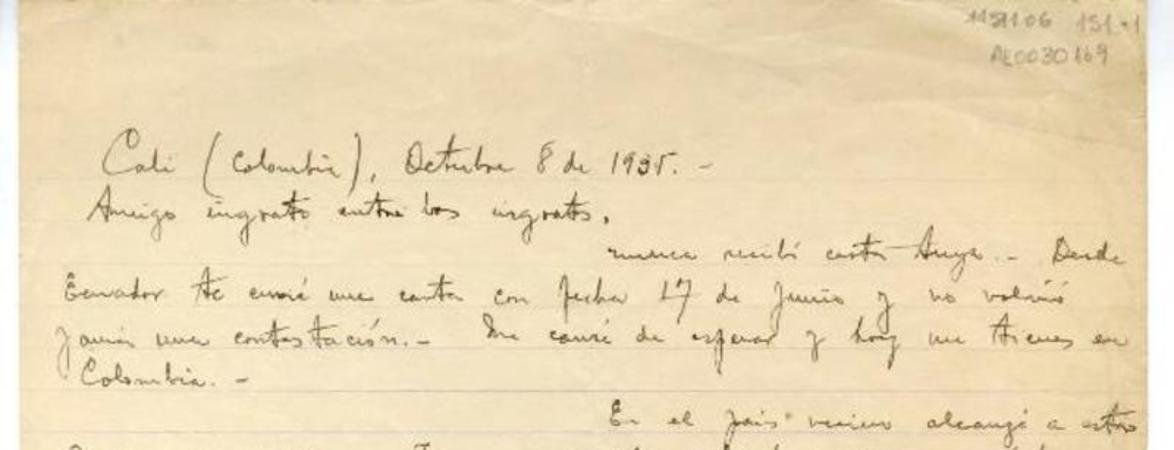 AE0030169
Cali (Colombia), Octubre 8 de 1935. -
Amigo ingrato entre los ingratos,
nunca recibí carta tuya. - Desde
Ecuador te envié una carta con fecha 17 de Junio y no volvió
jamás una contestación. - Me cansé de esperar y hoy me tienes en
Colombia. -
En el país vecino alcancé a estar